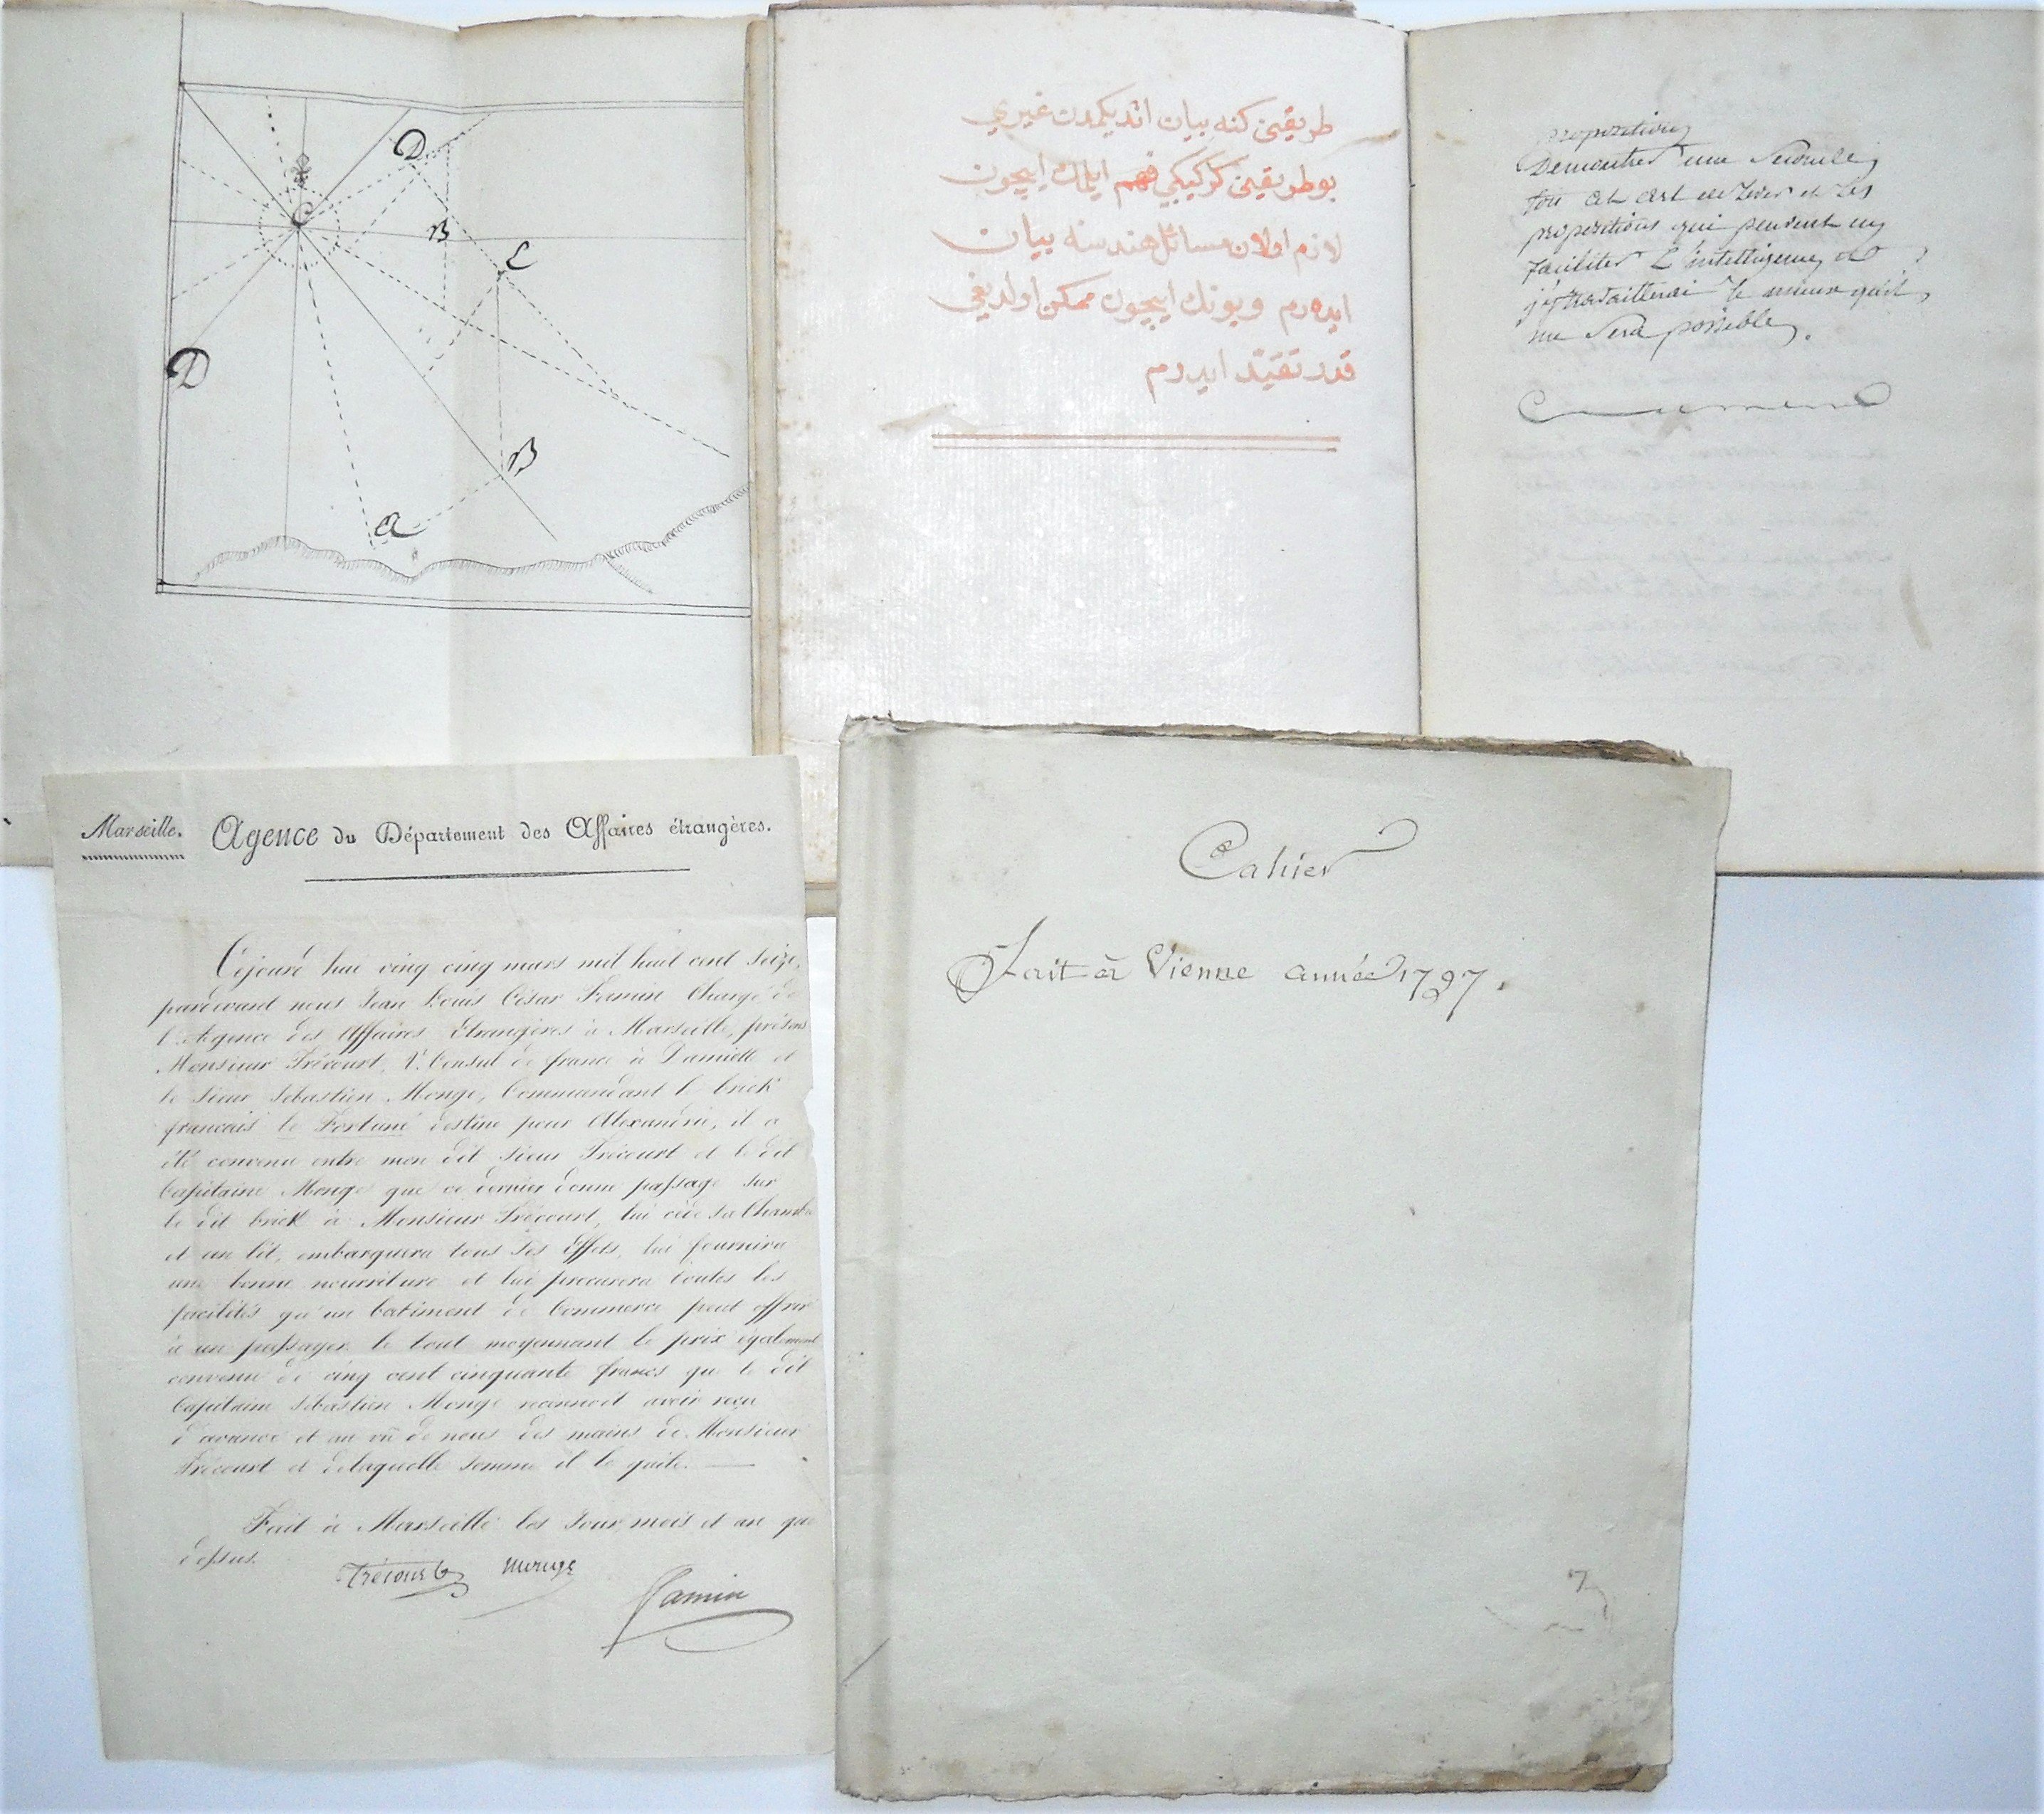 C
D
B
C
D
B
a
طريقين كنه بيان اتديكمدن غيري
بو طريقين كركيكي فهم ايلمك ايچون
لازم اولان مسائل هندسه بيان
ايده رم و بونك ايچون ممكن اولديغي
قدر تقيّد ايدرم
propositions
Demontrer une Seconde
fois cet art de lever et les
propositions qui peuvent en
faciliter L'intelligence, et
j'y travaillerai le mieux qu'il
me Sera possible.
Marseille.
Agence du Département des Affaires étrangères.
Cejourd'hui vingt cinq mars mil huit cent Seize,
pardevant nous Jean Louis César Famin Chargé de
l'Agence des Affaires Etrangères à Marseille, présens
Monsieur Trécourt, V. Consul de france à Damiette et
le Sieur Sébastien Monge, Commandant le brick
français le Fortuné destiné pour Alexandrie, il a
été convenu entre mon dit Sieur Trécourt et le dit
Capitaine Monge que ce dernier donne passage sur
le dit brick à Monsieur Trécourt, lui cède sa Chambre
et un lit, embarquera tous Ses Effets, lui fournira
une bonne nourriture et lui procurera toutes les
facilités qu'un batiment de Commerce peut offrir
à un passager le tout moyennant le prix également
convenu de cinq cent cinquante francs que le dit
Capitaine Sébastien Monge reconnoit avoir reçu
d'avance et au vû de nous des mains de Monsieur
Trécourt et de laquelle Somme il le quite.
Fait à Marseille les Jour, mois et an que
dessus.
Trécourt Monge
Famin
Cahier
Fait à Vienne année 1797.
7